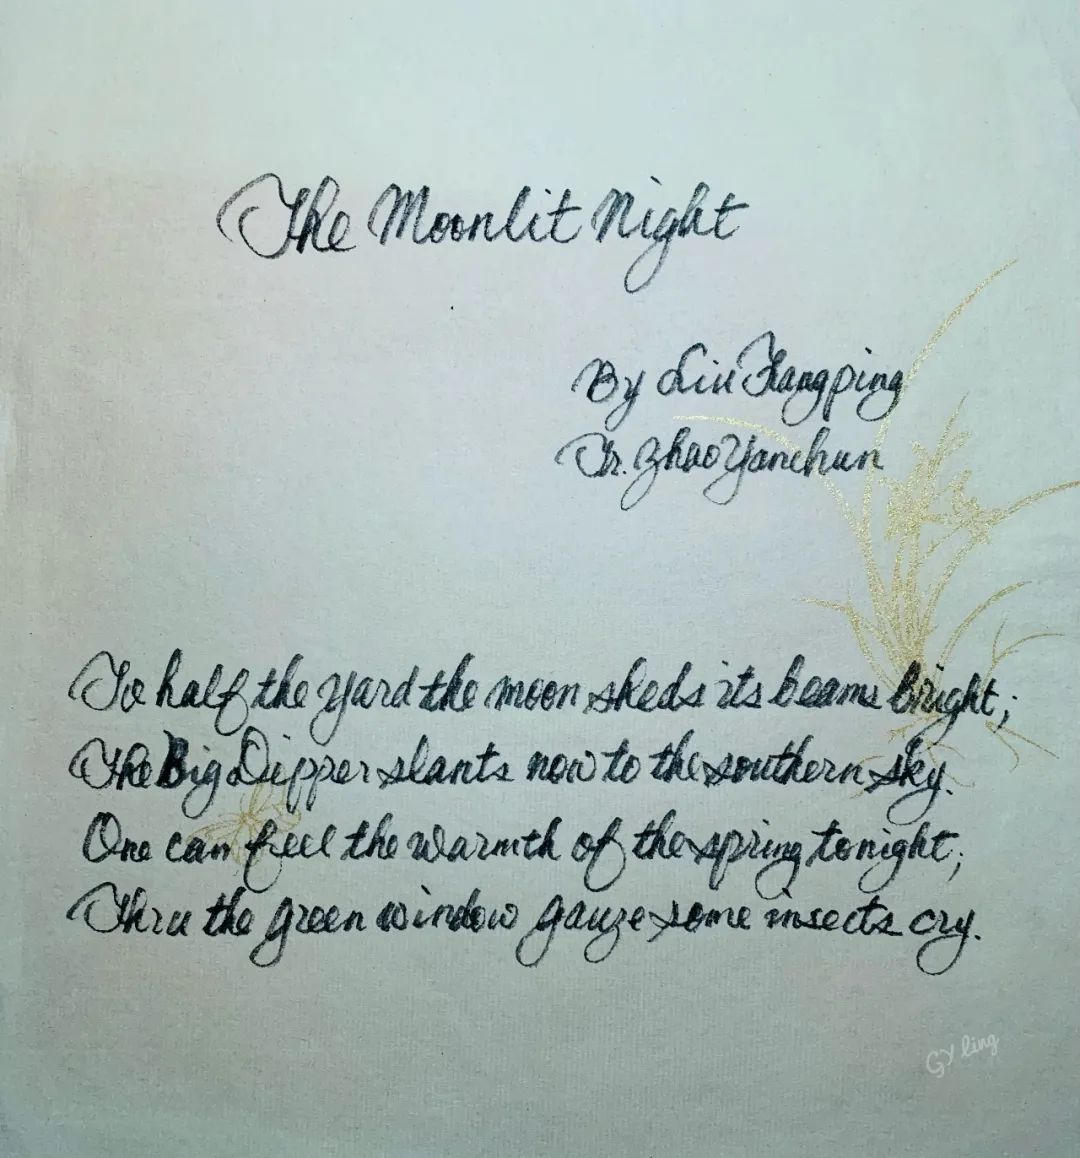 The Moonlit Night
By Liu Fangping
Tr. Zhao Yanchun
To half the yard the moon sheds its beams bright;
The Big Dipper slants now to the southern sky.
One can feel the warmth of the spring tonight;
Thru the green window gauze some insects cry.
GY ling